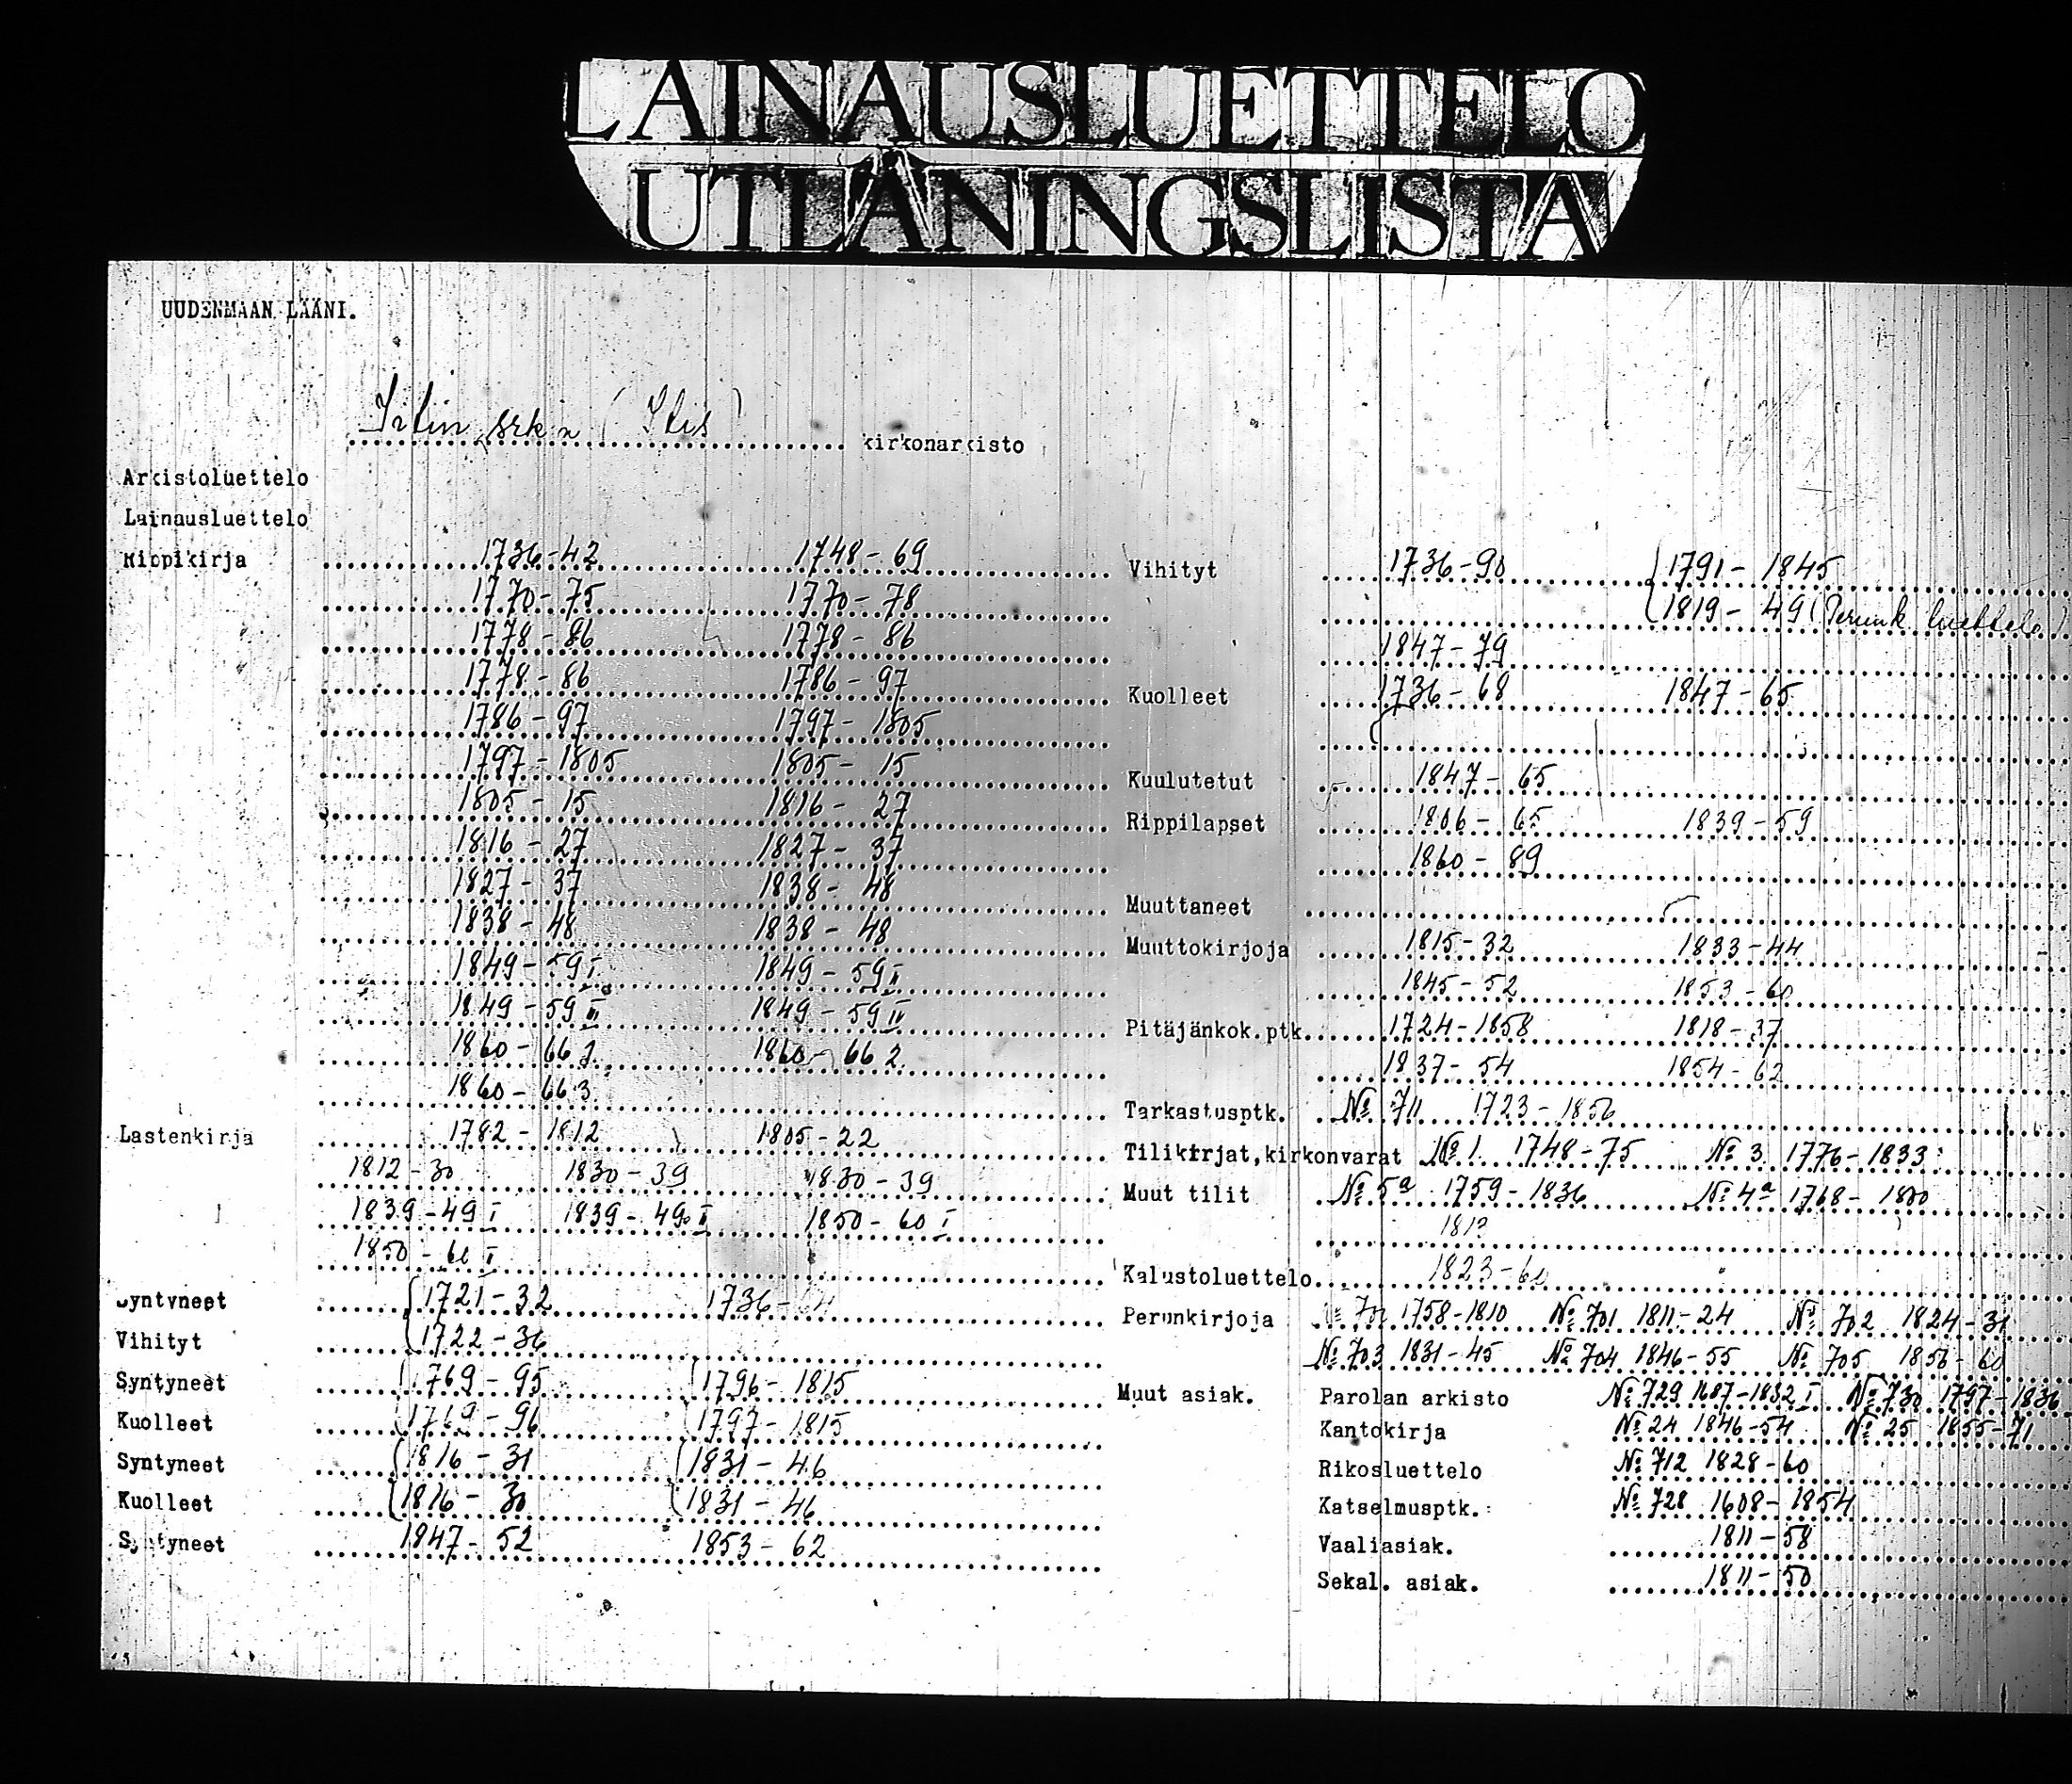 LAINAUSLUETTELO
UTLÅNINGSLISTA
UUDENMAAN LÄÄNI.
Iitin srk:n (Itis) kirkonarkisto
Arkistoluettelo
Lainausluettelo
Rippikirja 1736-42 1748-69
1770-75 1770-78
1778-86 1778-86
1778-86 1786-97
1786-97 1797-1805
1797-1805 1805-15
1805-15 1816-27
1816-27 1827-37
1827-37 1838-48
1838-48 1838-48
1849-59 I 1849-59 II
1849-59 III 1849-59 IV
1860-66 1860-66 2
1860-66 3
Lastenkirja 1782-1812 1805-22
1812-30 1830-39 1830-39
1839-49 I 1839-49 II 1850-60 I
1850-60
Syntyneet 1721-32 1736-
Vihityt 1722-36
Syntyneet 1769-95 1796-1815
Kuolleet 1769-96 1797-1815
Syntyneet 1816-31 1831-46
Kuolleet 1816-30 1831-46
Syntyneet 1847-52 1853-62
Vihityt 1736-90 1791-1845
1819-49 (Perunk luettelo)
1847-79
Kuolleet 1736-68 1847-65
Kuulutetut 1847-65
Rippilapset 1806-65 1839-59
1860-89
Muuttaneet
Muuttokirjoja 1815-32 1833-44
1845-52 1853-60
Pitäjänkok.ptk. 1724-1858 1818-37
1837-54 1854-62
Tarkastusptk. № 711 1723-1856
Tilikirjat,kirkonvarat № 1 1748-75 № 3 1776-1833
Muut tilit № 5a 1759-1836 № 4a 1768-
Kalustoluettelo 1823-60
Perunkirjoja 1758-1810 № 701 1811-24 № 702 1824-31
№ 703 1831-45 № 704 1846-55 № 705 1856-60
Muut asiak. Parolan arkisto № 729 1687-1832 I № 730 1797-1836
Kantokirja № 24 1846-54 № 25 1855-71
Rikosluettelo № 712 1828-60
Katselmusptk. № 728 1608-1854
Vaaliasiak. 1811-58
Sekal. asiak. 1811-50